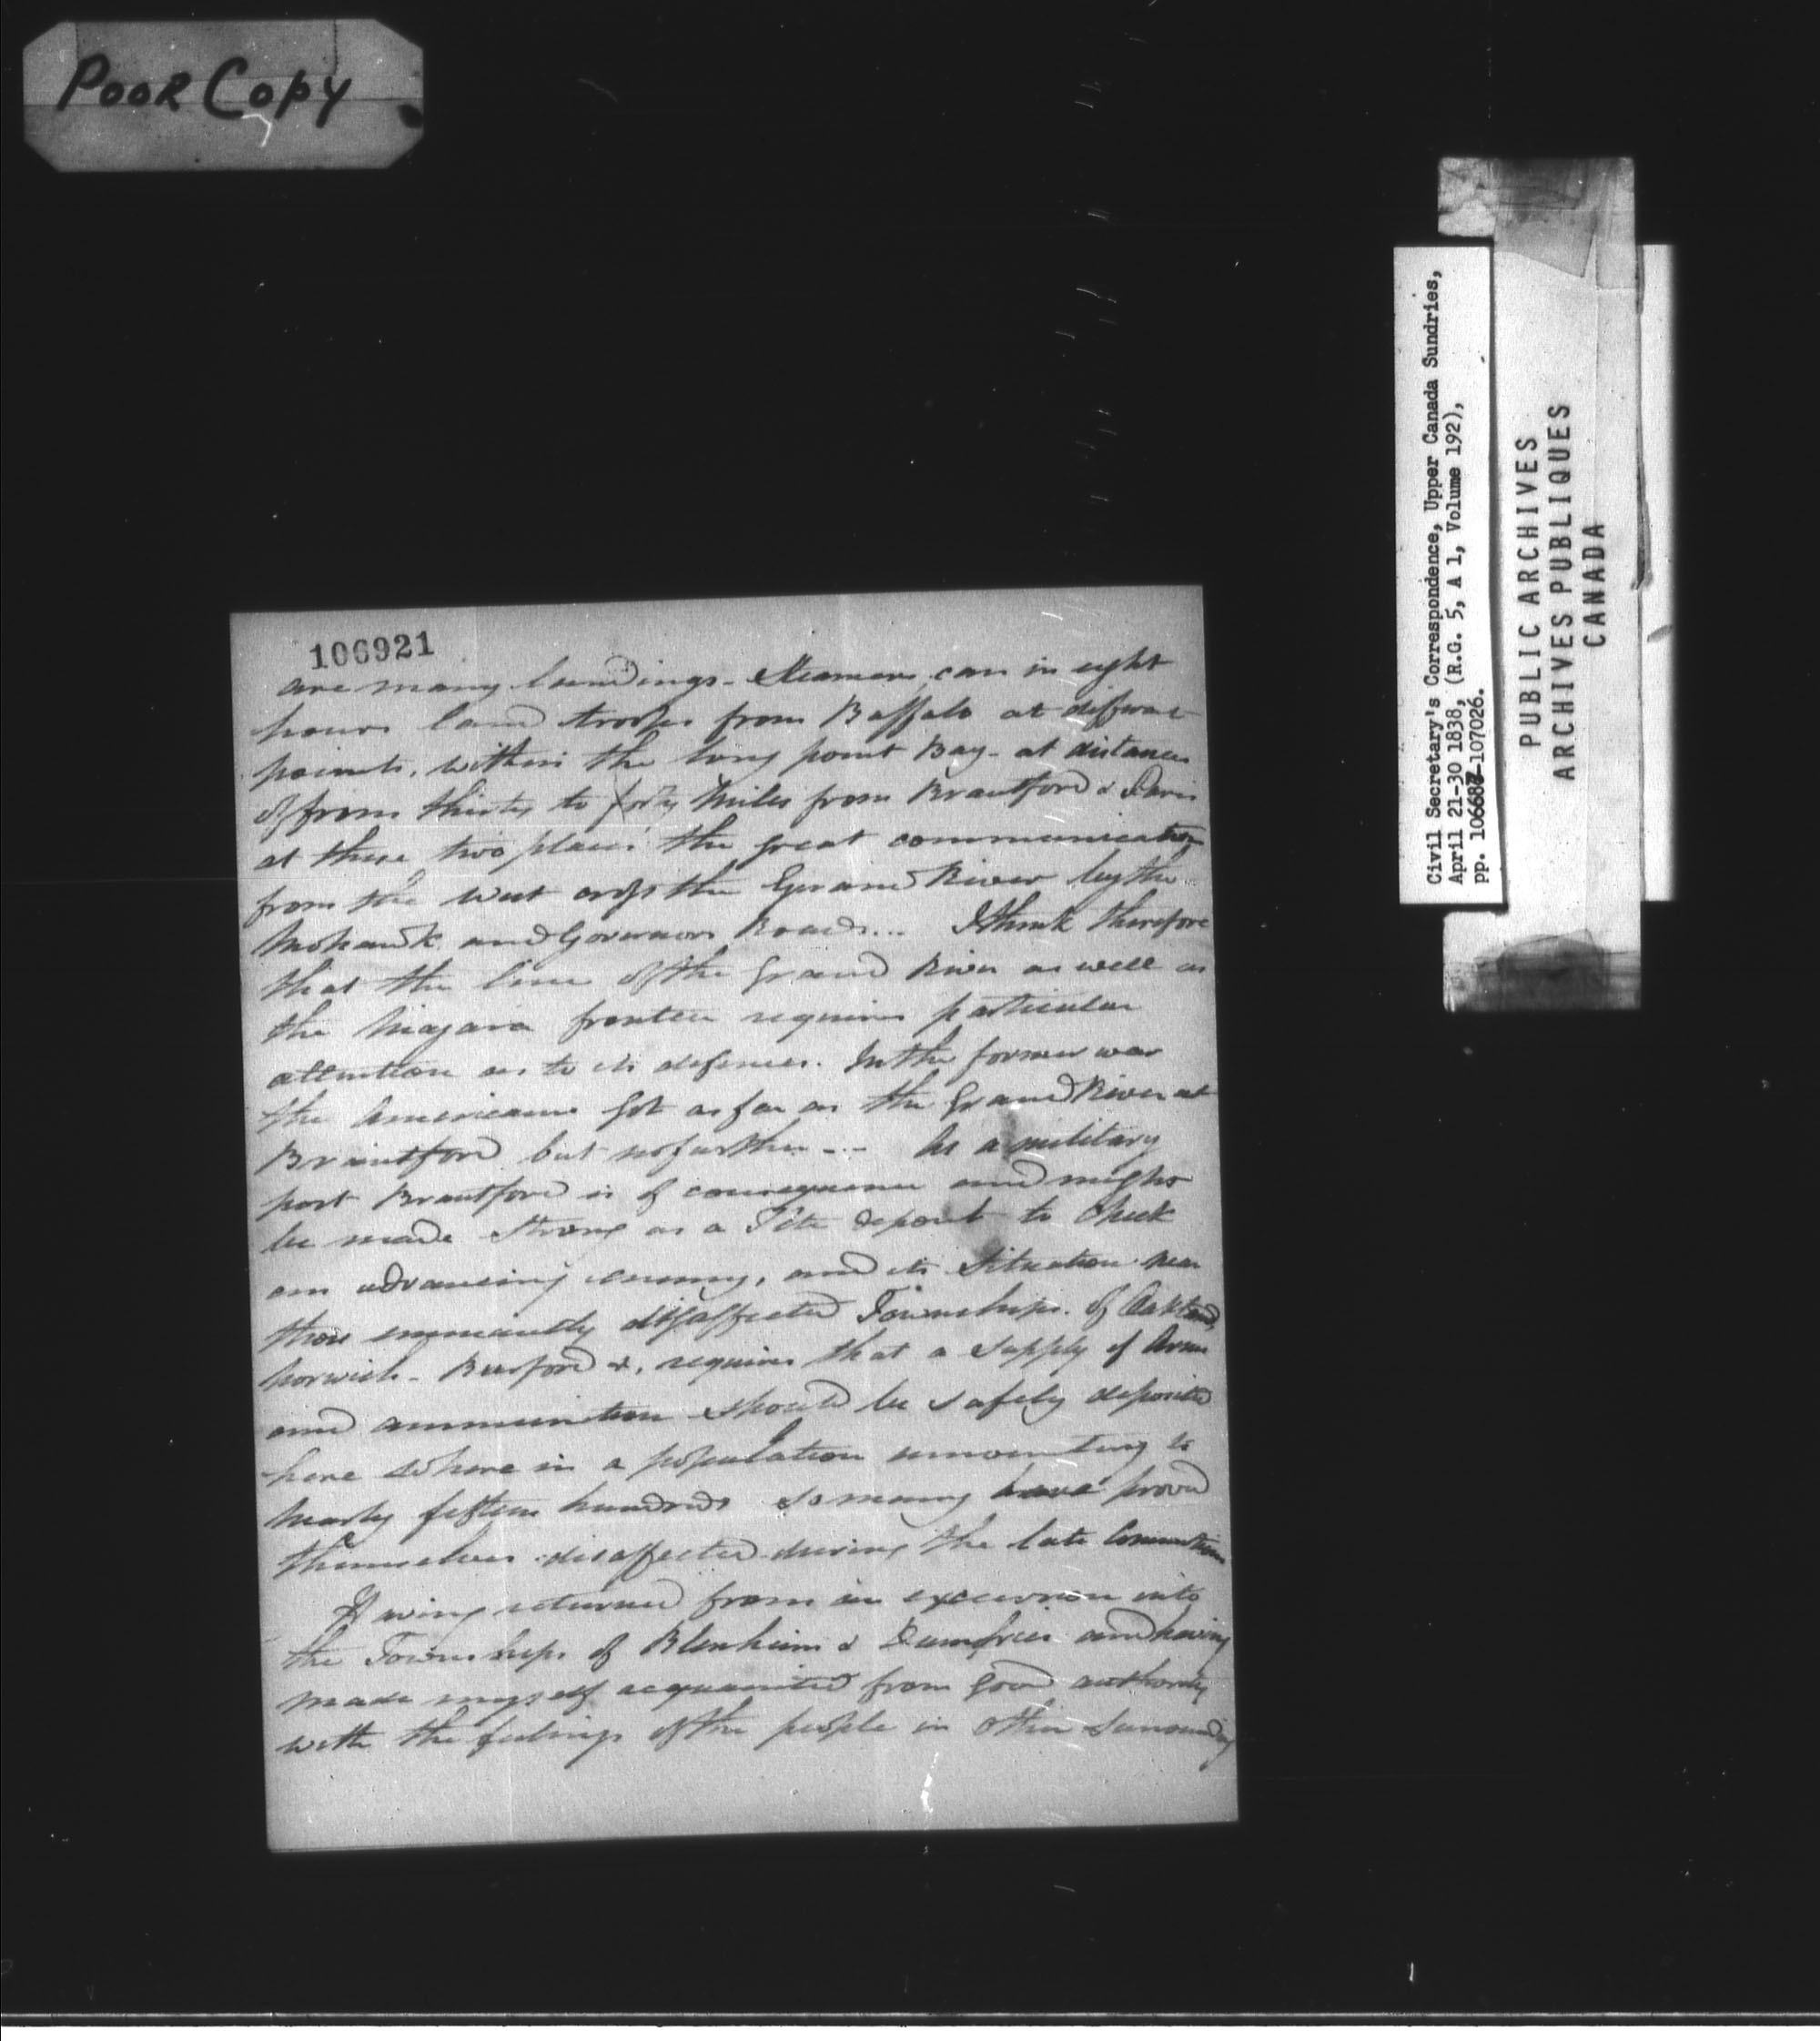 Poor Copy
106921
are many landings - Steamers can in eight
hours land troops from Buffalo at different
points, within the long point Bay - at distances
of from thirty to forty miles from Brantford & Paris
at these two places the great communication
from the West cross the Grand River by the
Mohawk and Governors Roads... I think therefore
that the line of the Grand River as well as
the Niagara frontier requires particular
attention as to its defences. In the former war
the Americans got as far as the Grand River at
Brantford but no further - - - As a military
post Brantford is of consequence and might
be made strong as a Tête depont to check
an advancing enemy, and its situation near
those eminently disaffected Townships of Oakland,
Norwich - Burford &, requires that a supply of Arms
and ammunition should be safely deposited
here where in a population amounting to
nearly fifteen hundred so many have proved
themselves disaffected during the late Commotions
Having returned from an excursion into
the Townships of Blenheim & Dumfries and having
made myself acquainted from good authority
with the feelings of the people in other surrounding
Civil Secretary's Correspondence, Upper Canada Sundries,
April 21-30 1838, (R.G. 5, A 1, Volume 192),
pp. 106687-107026.
PUBLIC ARCHIVES
ARCHIVES PUBLIQUES
CANADA